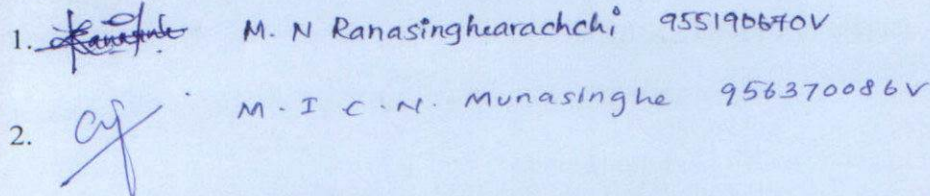 1. M. N Ranasinghearachchi 955190670V
M. I C. N. Munasinghe 956370086V
2.